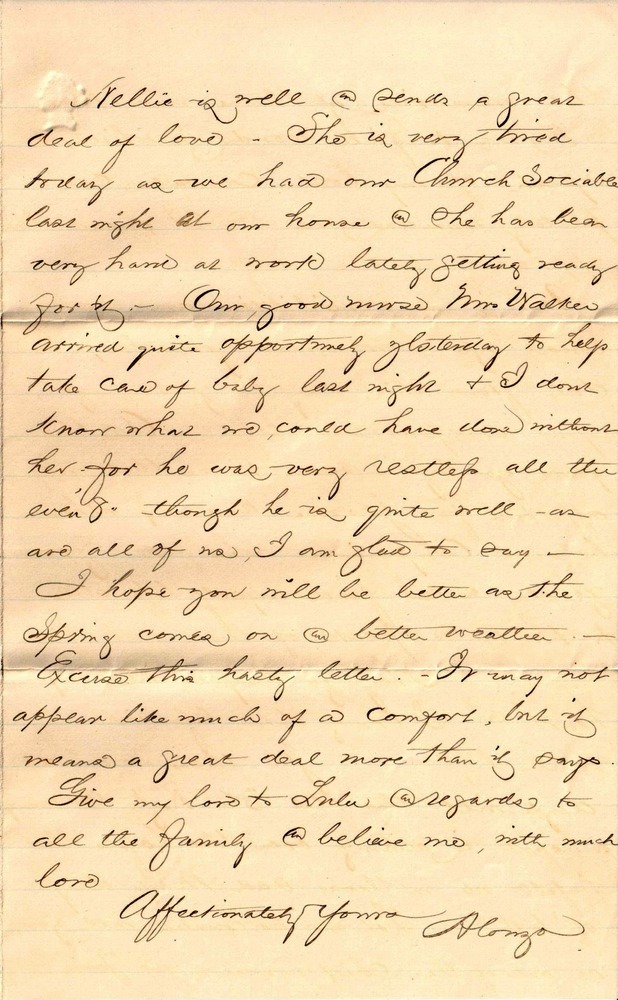 Nellie is well @ sends a great
deal of love - She is very tired
today as we had our Church Sociable
last night at our house @ she has been
very hard at work lately getting ready
for it. - Our good nurse Mrs Walker
arrived quite opportunely yesterday to help
take care of baby last night & I dont
know what we could have done without
her for he was very restless all the
even'g - though he is quite well - as
are all of us, I am glad to say -
I hope you will be better as the
Spring comes on @ better weather. -
Excuse this hasty letter. - It may not
appear like much of a comfort, but it
means a great deal more than it says.
Give my love to Lulu @ regards to
all the family @ believe me, with much
love
Affectionately Yours Alonzo